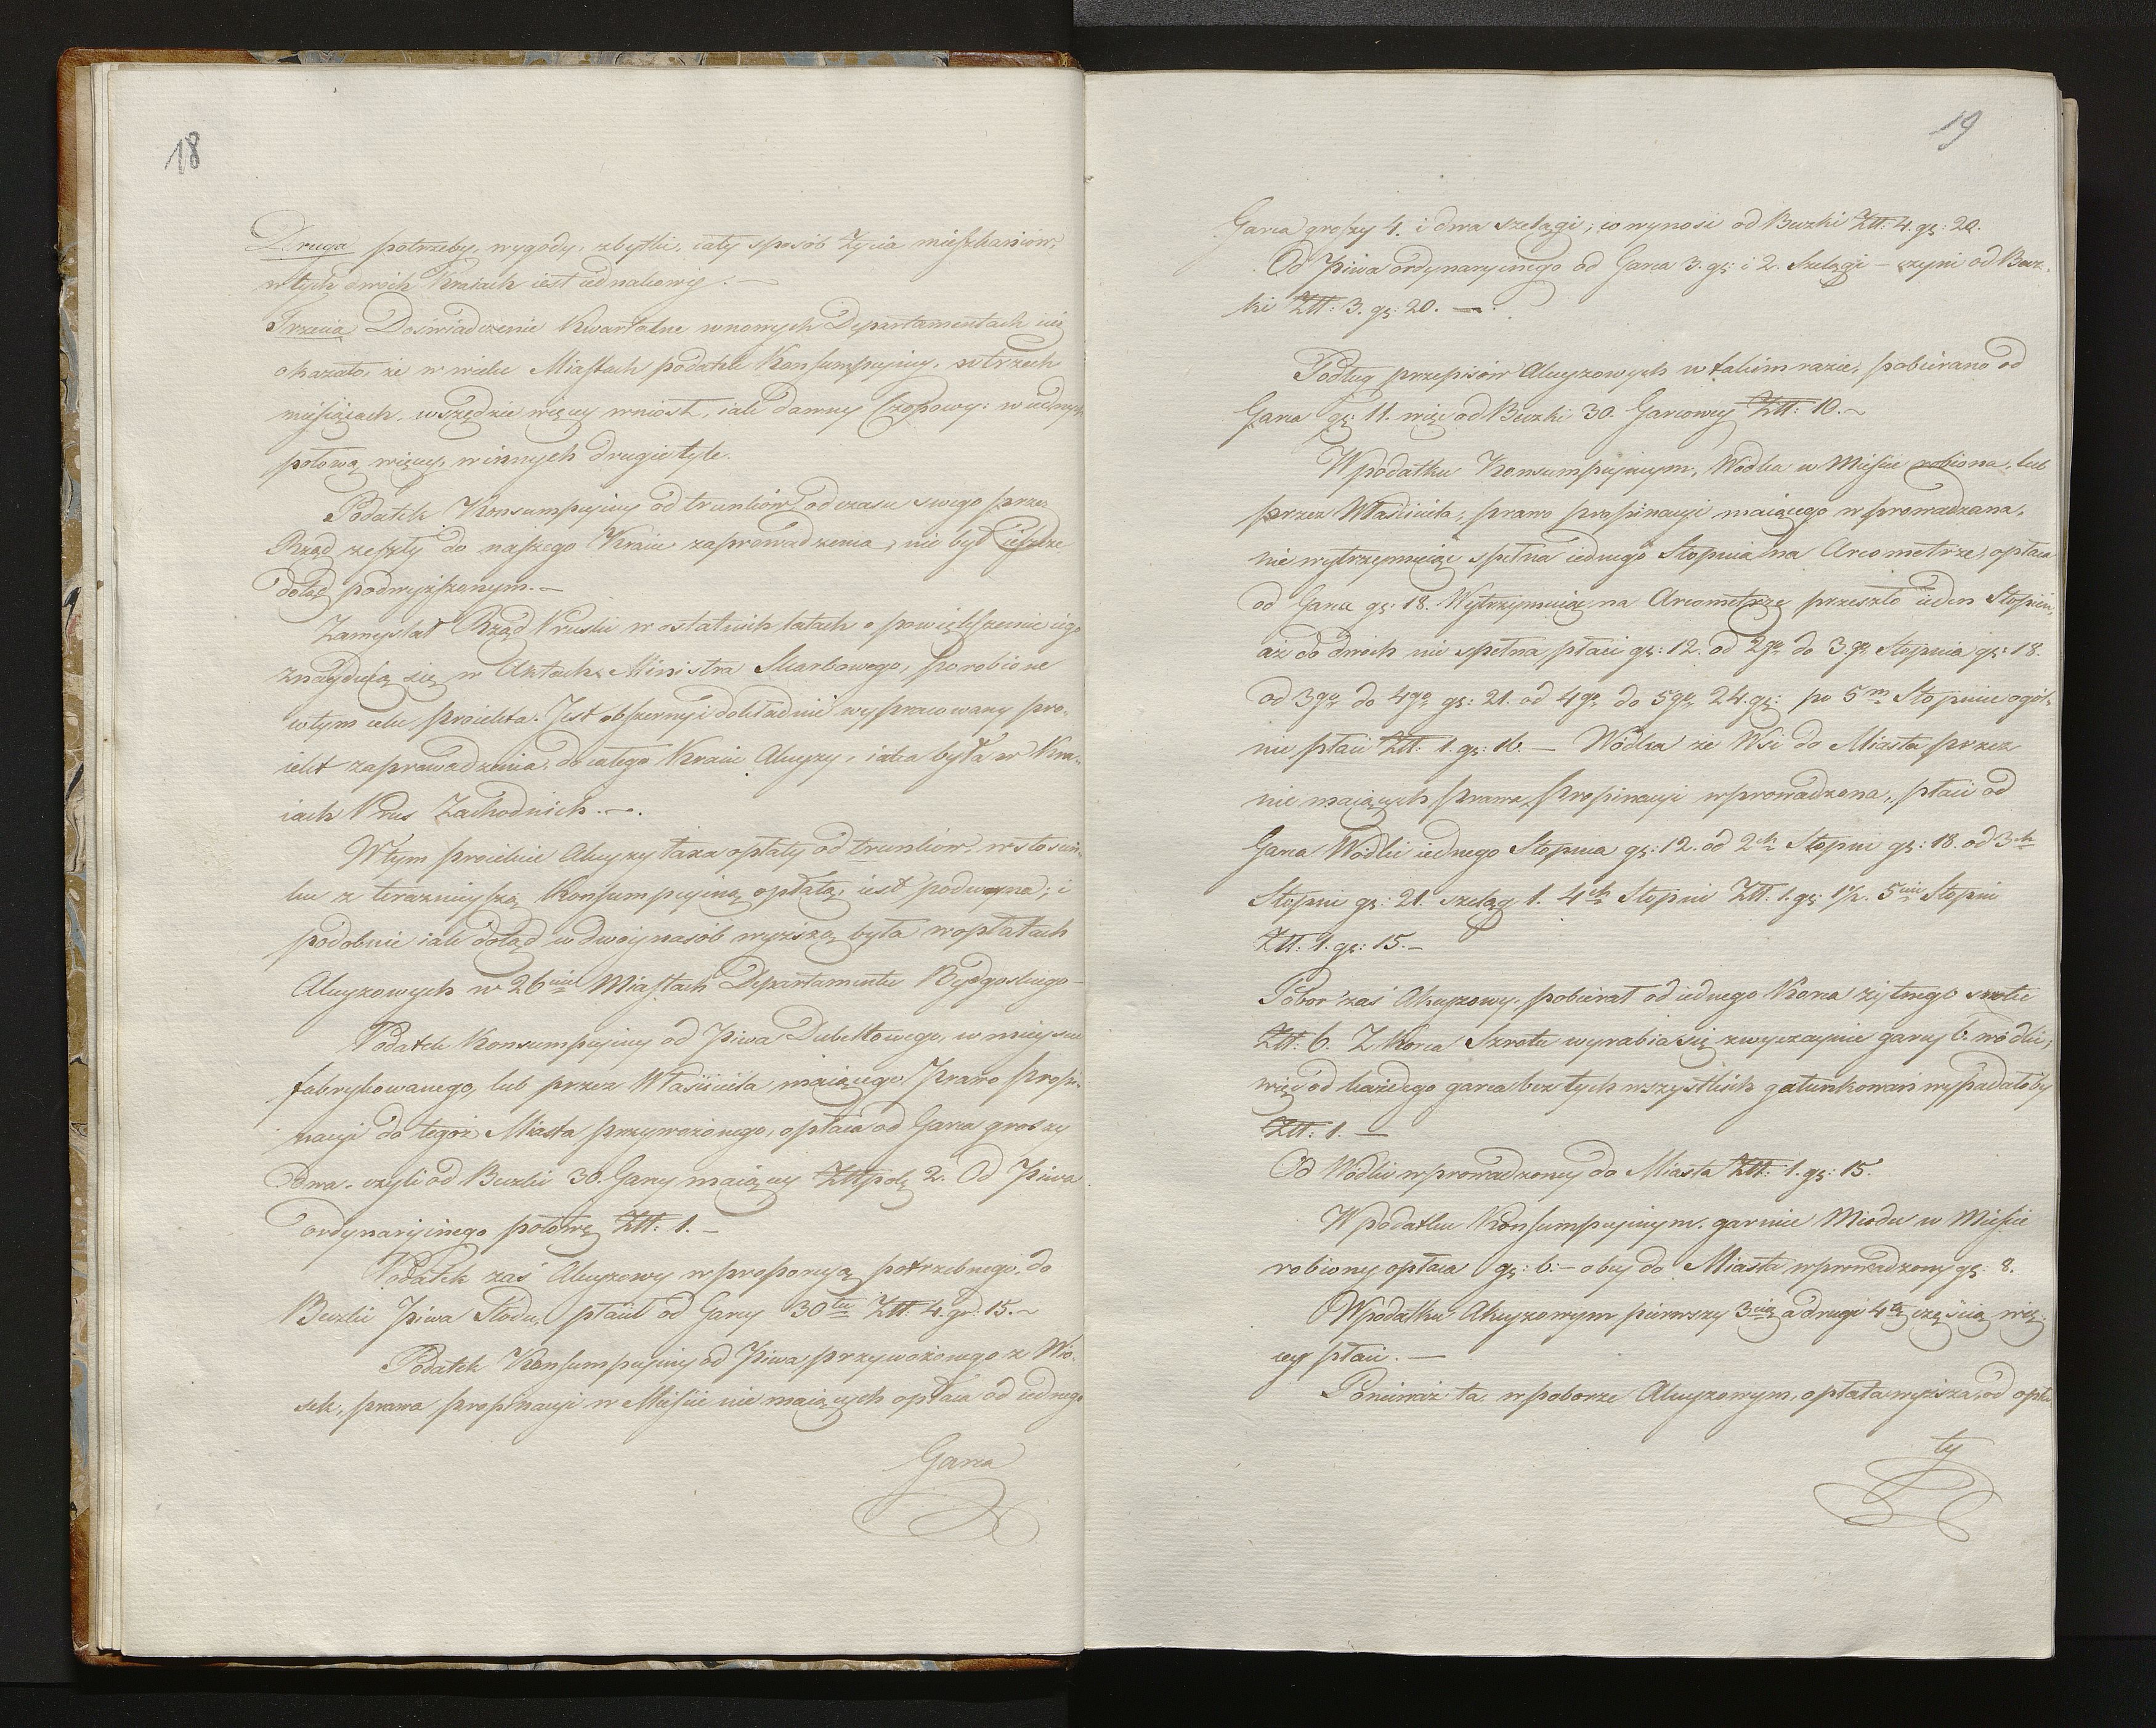 18
Druga potrzeby, wygody, zbytki, cały sposób Życia mieszkańców,
w tych dwóch Kraiach iest iednakowy. —
Trzecia Doświadczenie Kwartalne w nowych Departamentach iuż
okazało, że w wielu Miastach podatek Konsumpcyiny, w trzech
miesiącach, wszędzie więcey wniosł, iak dawny Czopowy: w iednych
połową więcey, w innych drugie tyle.
Podatek Konsumpcyiny od trunków od czasu swego przez
Rząd zeszły do naszego Kraiu zaprowadzenia, nie był ieszcze
dotąd podwyższonym. —
Zamyślał Rząd Pruski w ostatnich latach o powiększenie iego
znayduią się w Aktach Ministra Skarbowego, porobione
w tym celu proiekta. Jest obszerny i dokładnie wypracowany pro-
iekt zaprowadzenia, do całego Kraiu Akcyzy, iaka była w Kra-
iach Prus Zachodnich. —.
W tym proiekcie Akcyzy taxa opłaty od trunków, w stosun-
ku z teraznieyszą Konsumpcyiną opłatą, iest podwoyna; i
podobnie iak dotąd w dwóynasób wyższą była w opłatach
Akcyzowych w 26ciu Miastach Departamentu Bydgoskiego —
Podatek Konsumpcyiny od Piwa Dubeltowego, w mieyscu
fabrykowanego, lub przez Właściciela maiącego Prawo propi-
nacyi do tegoż Miasta przywożonego, opłaca od Garca groszy
dwa. czyli od Beczki 30. Garcy maiącey Ztt pols 2. Od Piwa
ordynaryinego połowę Ztt: 1. —
Podatek zaś Akcyzowy w proporcyą potrzebnego, do
Beczki Piwa Słodu, płacił od Garcy 30tu Ztt. 4. gr. 15. ~
Podatek Konsumpcyiny od Piwa przywożonego z Wio-
sek, prawa propinacyi w Mieście nie maiących opłaca od iednego
Garca
19
Garca groszy 4. i dwa szelągi; co wynosi od Beczki Ztt: 4. gr: 20.
Od Piwa ordynaryinego od Garca 3. gr: i 2. Szelągi — czyni od Becz-
ki Ztt: 3. gr: 20. —.
Podług przepisów Akcyzowych w takim razie, pobierano od
Garca gr: 11. więc od Beczki 30. Garcowey Ztt: 10. ~
W podatku Konsumpcyinym, Wódka w Mieście robiona, lub
przez Właściciela, prawo propinacyi maiącego wprowadzana,
nie wytrzymuiąc spełna iednego Stopnia na Areometrze, opłaca
od Garca gr: 18. Wytrzymuiąc na Areometrze przeszło ieden Stopień,
aż do dwóch nie spełna, płaci gr: 12. od 2go do 3.go Stopnia gr: 18.
od 3go do 4go gr: 21. od 4go do 5go 24. gr: po 5m Stopniu ogól-
nie płaci Ztt: 1. gr: 16. — Wódka ze Wsi do Miasta przez
nie maiących prawa, propinacyi wprowadzona, płaci od
Garca Wódki iednego Stopnia gr: 12. od 2ch Stopni gr: 18. od 3ch
Stopni gr: 21. szeląg 1. 4ch Stopni Ztt: 1. gr: 1½. 5ciu Stopni
Ztt: 1. gr: 15. —
Pobor zaś Akcyzowy, pobierał od iednego Korca żytnego srotu
Ztt: 6. Z Korca Szrotu wyrabia się zwyczaynie garcy 6. wódki;
więc od każdego garca bez tych wszystkich gatunkowań wypadałoby
Ztt: 1. —
Od Wódki wprowadzoney do Miasta Ztt: 1. gr: 15.
W podatku Konsumpcyinym. garniec Miodu w Mieście
robiony opłaca gr: 6. — obcy do Miasta wprowadzony gr: 8.
W podatku Akcyzowym pierwszy 3cią a drugi 4tą częścią wię-
cey płaci. —
Ponieważ ta, w poborze Akcyzowym, opłata wyższa, od opła-
ty